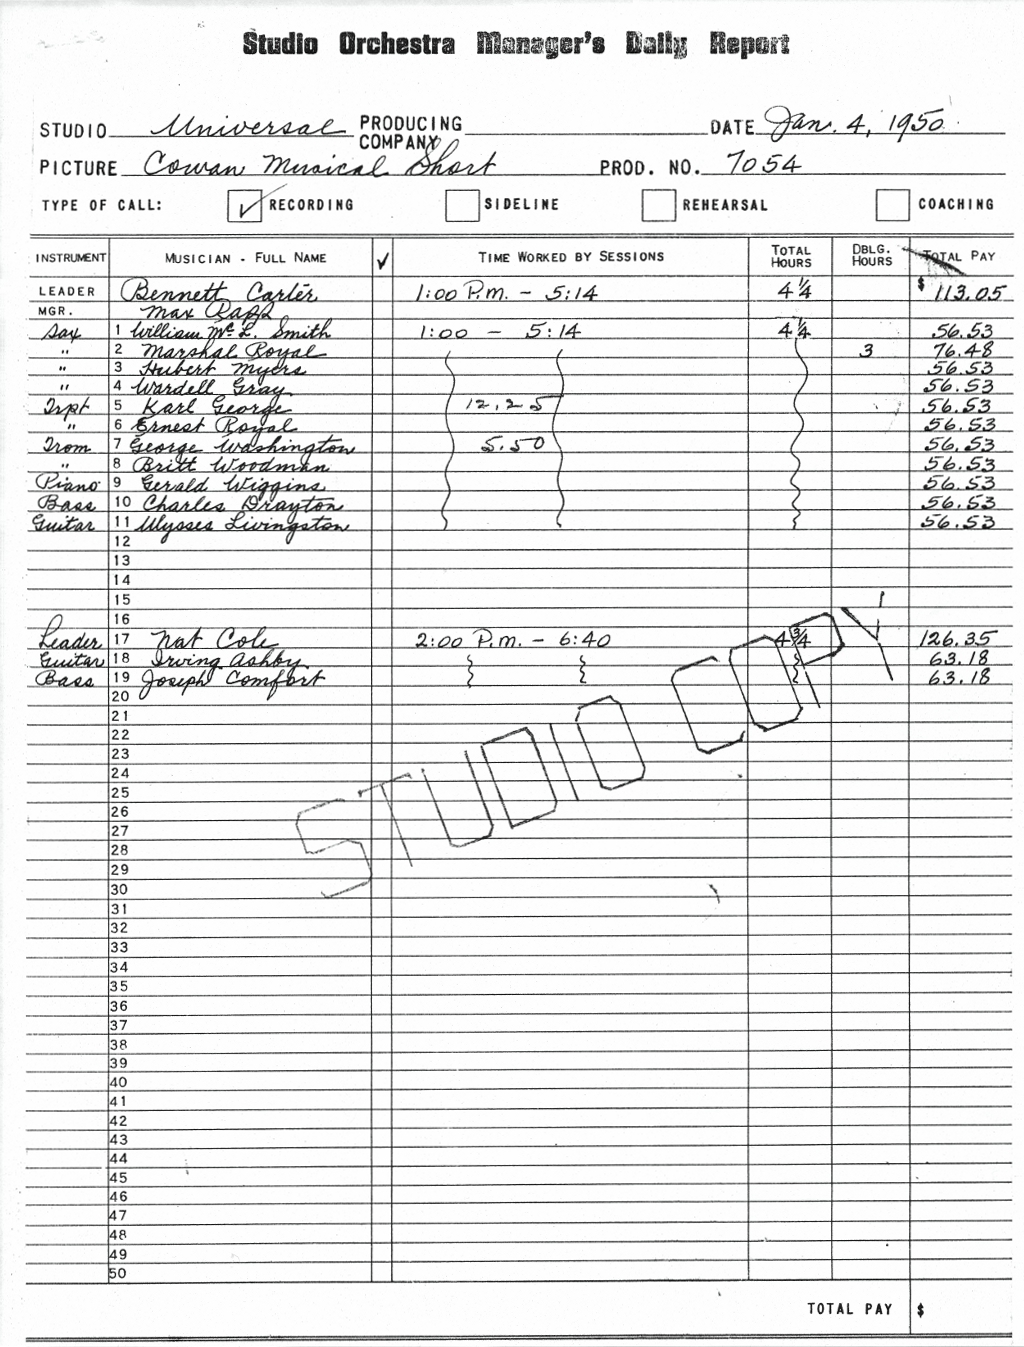 Studio Orchestra Manager's Daily Report
STUDIO Universal PRODUCING COMPANY DATE Jan. 4, 1950
PICTURE Cowan Musical Short PROD. NO. 7054
TYPE OF CALL: ✓ RECORDING SIDELINE REHEARSAL COACHING
INSTRUMENT MUSICIAN - FULL NAME ✓ TIME WORKED BY SESSIONS TOTAL HOURS DBLG. HOURS TOTAL PAY
LEADER Bennett Carter 1:00 P.m. - 5:14 4 1/4 $ 113.05
MGR. Max Rapp
Sax 1 William Mc L. Smith 1:00 - 5:14 4 1/4 56.53
" 2 Marshal Royal 3 76.48
" 3 Hubert Myers 56.53
" 4 Wardell Gray 56.53
Trpt 5 Karl George 12.25 56.53
" 6 Ernest Royal 56.53
Trom 7 George Washington 5.50 56.53
" 8 Britt Woodman 56.53
Piano 9 Gerald Wiggins 56.53
Bass 10 Charles Drayton 56.53
Guitar 11 Ulysses Livingston 56.53
12
13
14
15
16
Leader 17 Nat Cole 2:00 P.m. - 6:40 4 3/4 126.35
Guitar 18 Irving Ashby 63.18
Bass 19 Joseph Comfort 63.18
20
21
22
23
24
25
26
27
28
29
30
31
32
33
34
35
36
37
38
39
40
41
42
43
44
45
46
47
48
49
50
STUDIO COPY
TOTAL PAY $